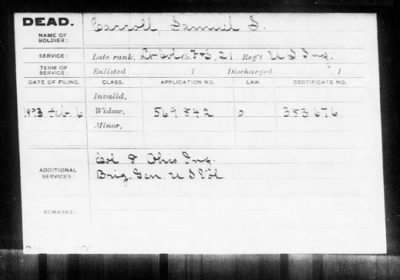 DEAD.
NAME OF SOLDIER:
Carroll, Samuel S.
SERVICE:
Late rank, Lt Col, Co. F & S, 21 Reg't U S Inf.
TERM OF SERVICE:
Enlisted 1 Discharged 1
DATE OF FILING. CLASS. APPLICATION NO. LAW. CERTIFICATE NO.
Invalid,
1893 Feb. 6 Widow, 569842 383676
Minor,
ADDITIONAL SERVICES:
Col 8 Ohio Inf.
Brig. Gen. U S Vol
REMARKS: